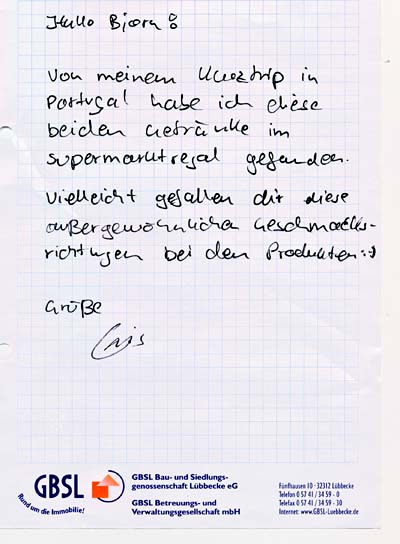 Hallo Bjørn!
Von meinem Kurztrip in
Portugal habe ich diese
beiden Getränke im
Supermarktregal gefunden.
Vielleicht gefallen dir diese
außergewöhnlichen Geschmacks-
richtungen bei den Produkten :-)
Grüße
GBSL
Rund um die Immobilie!
GBSL Bau- und Siedlungs-
genossenschaft Lübbecke eG
GBSL Betreuungs- und
Verwaltungsgesellschaft mbH
Fünfhausen 10 · 32312 Lübbecke
Telefon 0 57 41 / 34 59 - 0
Telefax 0 57 41 / 34 59 - 30
Internet: www.GBSL-Luebbecke.de